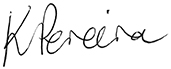 K Pereira